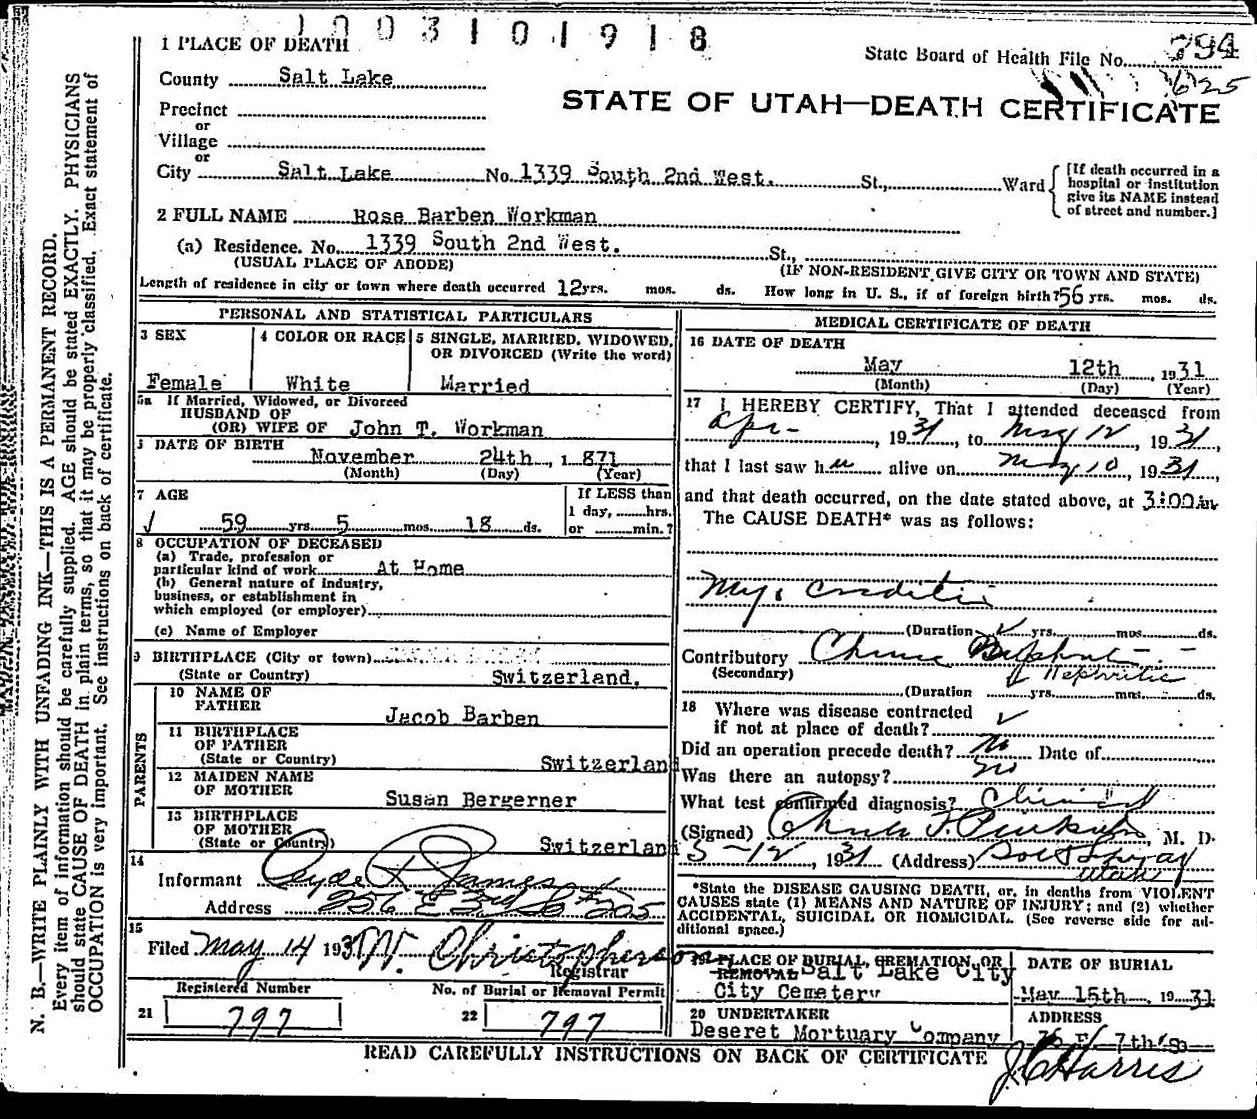 1003101918
1 PLACE OF DEATH
State Board of Health File No. 794
625
County Salt Lake
STATE OF UTAH—DEATH CERTIFICATE
Precinct
or
Village
or
City Salt Lake No. 1339 South 2nd West. St., Ward
[If death occurred in a hospital or institution give its NAME instead of street and number.]
2 FULL NAME Rose Barben Workman
(a) Residence. No. 1339 South 2nd West. St.,
(USUAL PLACE OF ABODE) (IF NON-RESIDENT GIVE CITY OR TOWN AND STATE)
Length of residence in city or town where death occurred 12 yrs. mos. ds. How long in U. S., if of foreign birth? 56 yrs. mos. ds.
PERSONAL AND STATISTICAL PARTICULARS
3 SEX 4 COLOR OR RACE 5 SINGLE, MARRIED, WIDOWED,
OR DIVORCED (Write the word)
Female White Married
5a If Married, Widowed, or Divorced
HUSBAND OF
(OR) WIFE OF John T. Workman
DATE OF BIRTH
November 24th, 1871
(Month) (Day) (Year)
7 AGE If LESS than
1 day, hrs.
59 yrs. 5 mos. 18 ds. or min.?
8 OCCUPATION OF DECEASED
(a) Trade, profession or
particular kind of work At Home
(b) General nature of industry,
business, or establishment in
which employed (or employer)
(c) Name of Employer
9 BIRTHPLACE (City or town)
(State or Country) Switzerland.
PARENTS
10 NAME OF
FATHER Jacob Barben
11 BIRTHPLACE
OF FATHER
(State or Country) Switzerland
12 MAIDEN NAME
OF MOTHER Susan Bergerner
13 BIRTHPLACE
OF MOTHER
(State or Country) Switzerland
14
Informant Clyde F. James
Address 256 E 3rd So # 205
15
Filed May 14 1931 W. Christopherson
Registrar
Registered Number No. of Burial or Removal Permit
21 797 22 797
MEDICAL CERTIFICATE OF DEATH
16 DATE OF DEATH
May 12th, 1931
(Month) (Day) (Year)
17 I HEREBY CERTIFY, That I attended deceased from
Apr- , 1931, to May 12, 1931,
that I last saw her alive on May 10, 1931,
and that death occurred, on the date stated above, at 3:00
The CAUSE DEATH* was as follows:
(Duration yrs. mos. ds.
Contributory
(Secondary) Nephritis
(Duration yrs. mos. ds.
18 Where was disease contracted
if not at place of death?
Did an operation precede death? No Date of
Was there an autopsy? no
What test confirmed diagnosis? Clinical
(Signed) Charles F. M. D.
5-12, 1931 (Address)
Utah
*State the DISEASE CAUSING DEATH, or, in deaths from VIOLENT
CAUSES state (1) MEANS AND NATURE OF INJURY; and (2) whether
ACCIDENTAL, SUICIDAL OR HOMICIDAL. (See reverse side for ad-
ditional space.)
19 PLACE OF BURIAL, CREMATION, OR
REMOVAL Salt Lake City
City Cemetery
DATE OF BURIAL
May 15th, 1931
20 UNDERTAKER ADDRESS
Deseret Mortuary Company 36 E/ 7th So
READ CAREFULLY INSTRUCTIONS ON BACK OF CERTIFICATE
J C Harris
N. B.—WRITE PLAINLY WITH UNFADING INK—THIS IS A PERMANENT RECORD.
Every item of information should be carefully supplied. AGE should be stated EXACTLY. PHYSICIANS
should state CAUSE OF DEATH in plain terms, so that it may be properly classified. Exact statement of
OCCUPATION is very important. See instructions on back of certificate.